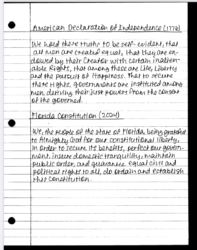 American Declaration of Independence (1776)
We hold these truths to be self-evident, that
all men are created equal, that they are en-
dowed by their Creator with certain inalien-
able Rights, that among these are Life, Liberty
and the pursuit of Happiness. That to secure
these rights, governments are instituted among
men, deriving their just powers from the consent
of the governed.
Florida Constitution (2024)
We, the people of the State of Florida, being grateful
to Almighty God for our constitutional liberty,
in order to secure its benefits, perfect our govern-
ment, insure domestic tranquility, maintain
public order, and guarantee equal civil and
political rights to all, do ordain and establish
this constitution.